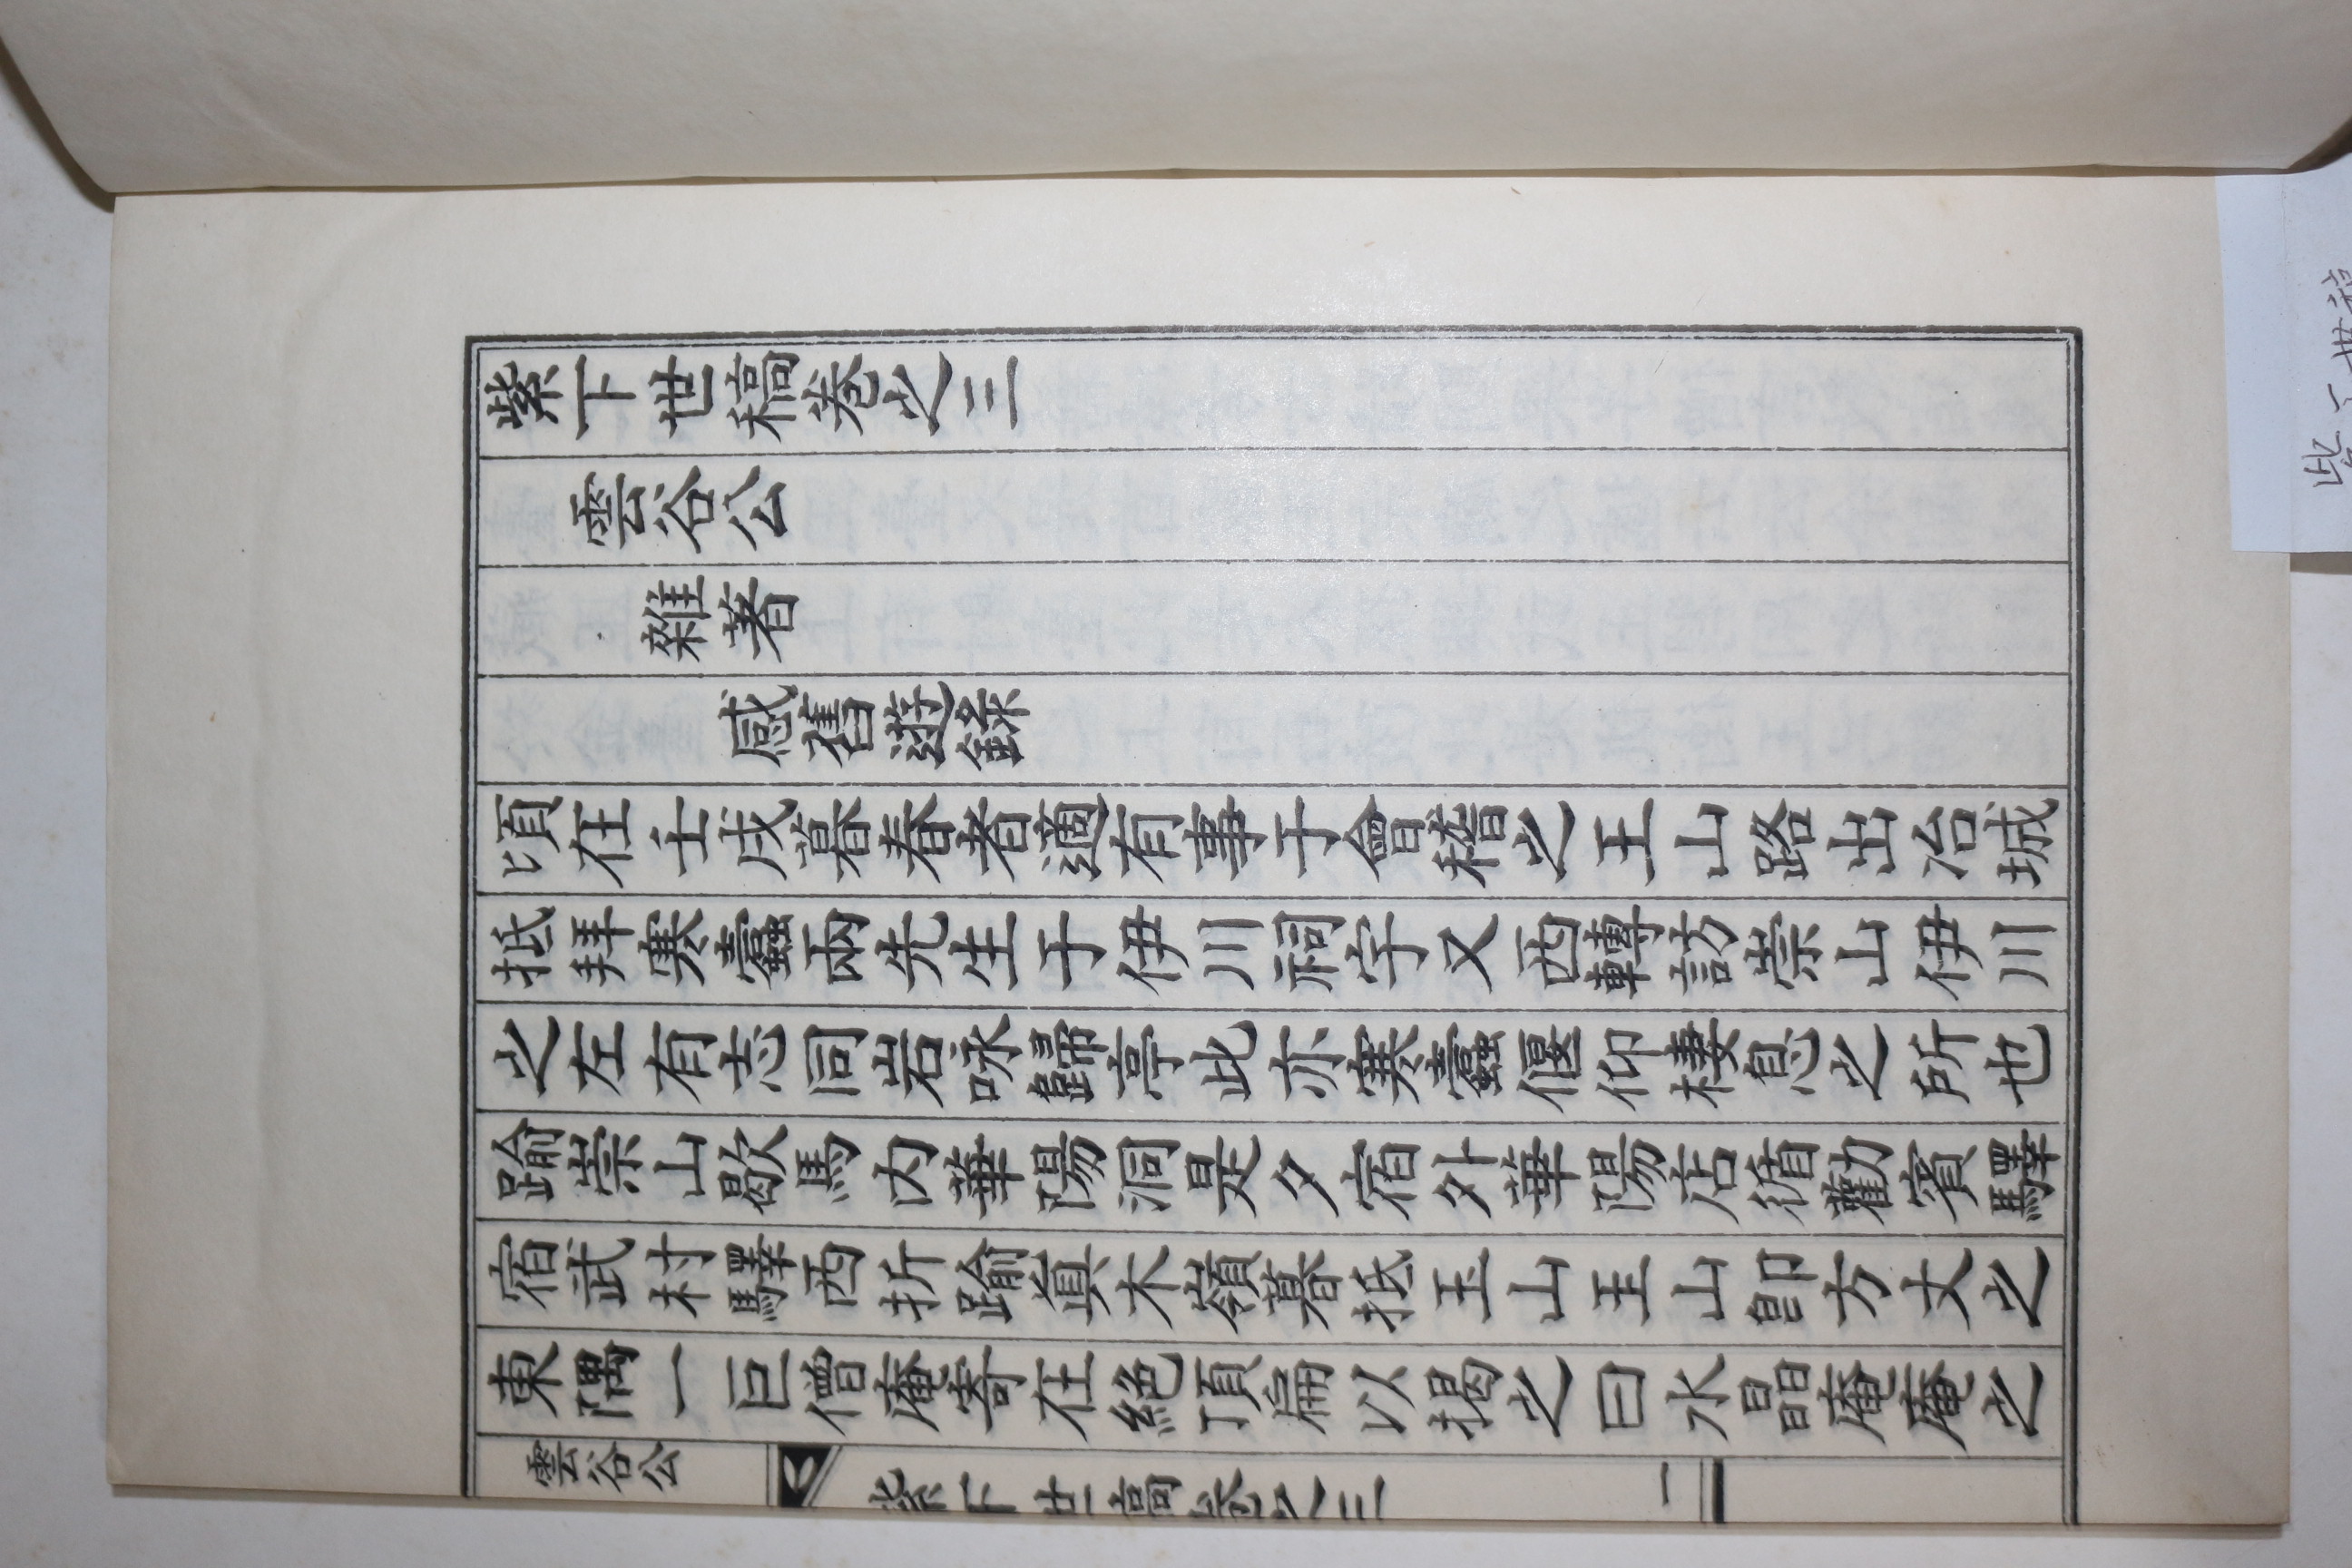 紫下世稿卷之三
雲谷公
雜著
感舊遊錄
頃在壬戌暮春者適有事于會稽之玉山路出冶城
抵拜寒蠹兩先生于伊川祠宇又西轉訪崇山伊川
之左有志同岩咏歸亭此亦寒蠹偃仰棲息之所也
踰崇山歇馬內華陽洞是夕宿外華陽店循勸賓驛
宿武村驛西折踰眞木嶺暮抵玉山玉山卽方丈之
東隅一巨僧庵寄在絶頂扁以揭之曰水晶庵庵之
雲谷公
紫下世稿卷之三
一